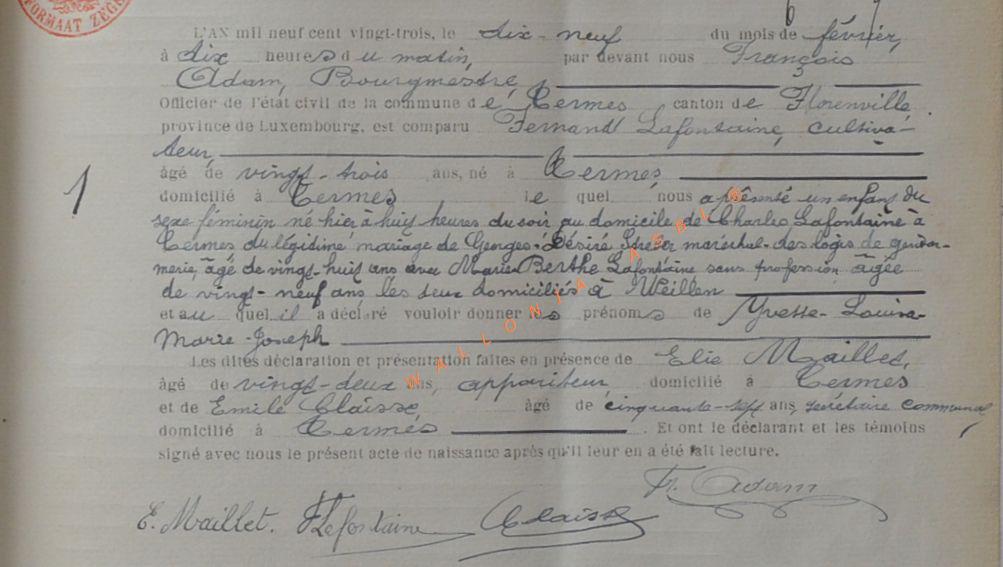 FORMAAT ZEG
L'AN mil neuf cent vingt-trois, le dix-neuf du mois de février,
à dix heures du matin, par devant nous François
Adam, Bourgmestre,
Officier de l'état civil de la commune de Termes canton de Florenville
province de Luxembourg, est comparu Fernand Lafontaine, cultiva-
teur,
âgé de vingt-trois ans, né à Termes,
domicilié à Termes le quel nous a présenté un enfant du
sexe féminin né hier à huit heures du soir au domicile de Charles Lafontaine à
Termes du légitime mariage de Georges-Désiré maréchal-des-logis de gendar-
merie, âgé de vingt-huit ans avec Marie Berthe Lafontaine sans profession âgée
de vingt-neuf ans les deux domiciliés à Weillen
et au quel il a déclaré vouloir donner les prénoms de Yvette-Louisa-
Marie-Joseph
Les dites déclaration et présentation faites en présence de Elie Maillet,
âgé de vingt-deux ans, appariteur domicilié à Termes
et de Emile Claisse, âgé de cinquante-sept ans, secrétaire communal,
domicilié à Termes. Et ont le déclarant et les témoins
signé avec nous le présent acte de naissance après qu'il leur en a été fait lecture.
1
Fr. Adam
E. Maillet. F Lafontaine EClaisse
WALLONIA ASBL ©